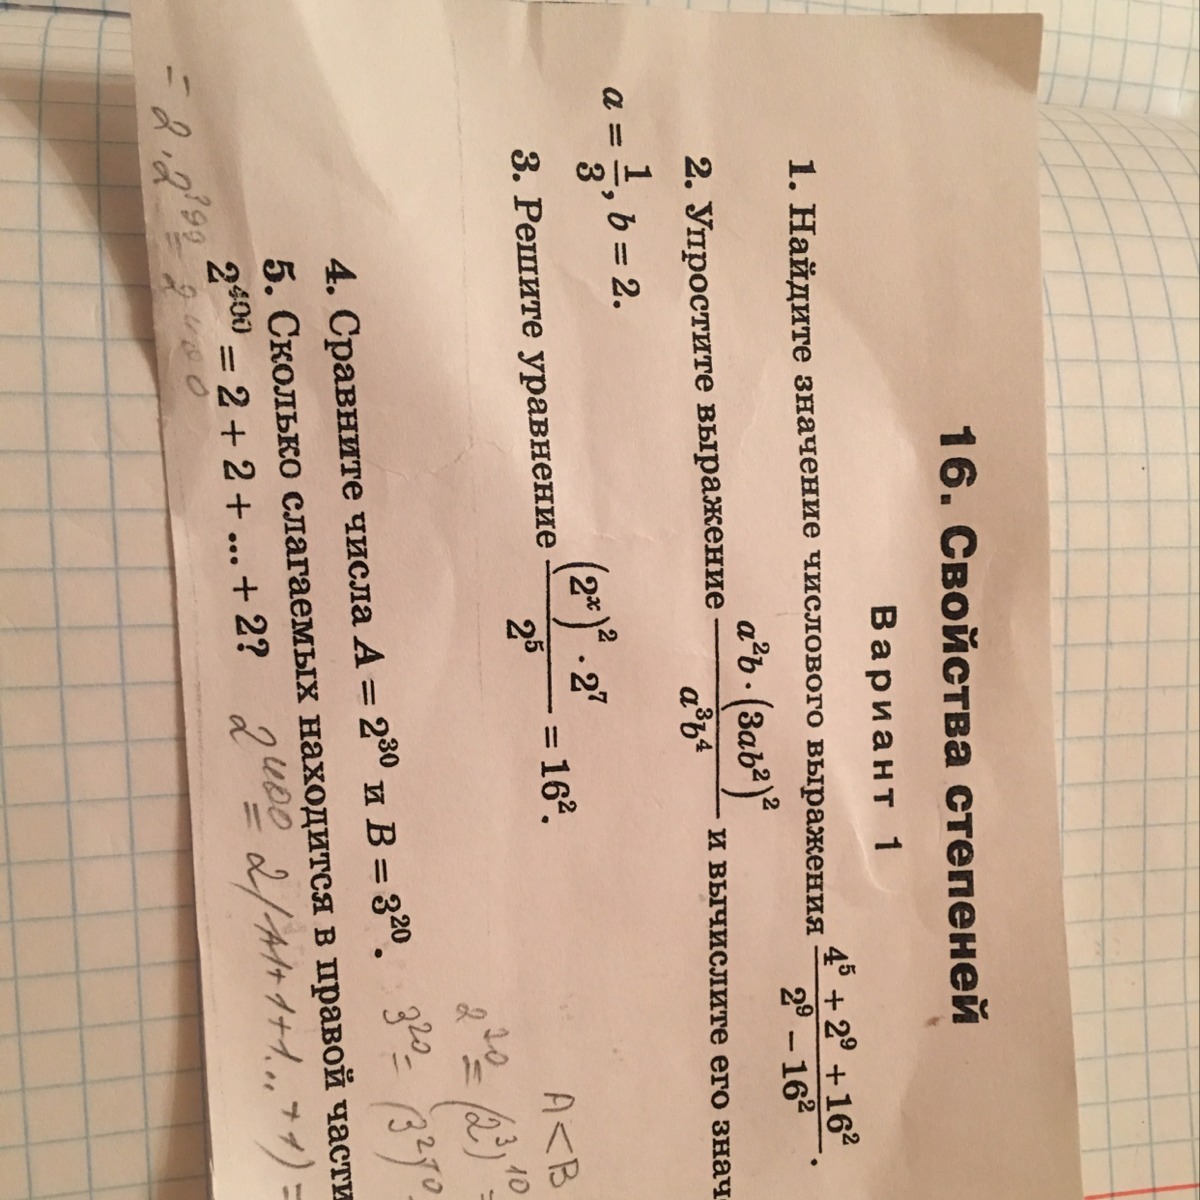 16. Свойства степеней
Вариант 1
1. Найдите значение числового выражения (4⁵ + 2⁹ + 16²)/(2⁹ − 16²).
2. Упростите выражение (a²b · (3ab²)²)/(a³b⁴) и вычислите его знач
a = 1/3, b = 2.
3. Решите уравнение ((2ˣ)² · 2⁷)/2⁵ = 16².
A < B
2³⁰ = (2³)¹⁰ =
4. Сравните числа A = 2³⁰ и B = 3²⁰.
3²⁰ = (3²)¹⁰
5. Сколько слагаемых находится в правой части
2⁴⁰⁰ = 2 + 2 + ... + 2?
2⁴⁰⁰ = 2(1+1+1... +1) =
= 2·2³⁹⁹ = 2⁴⁰⁰